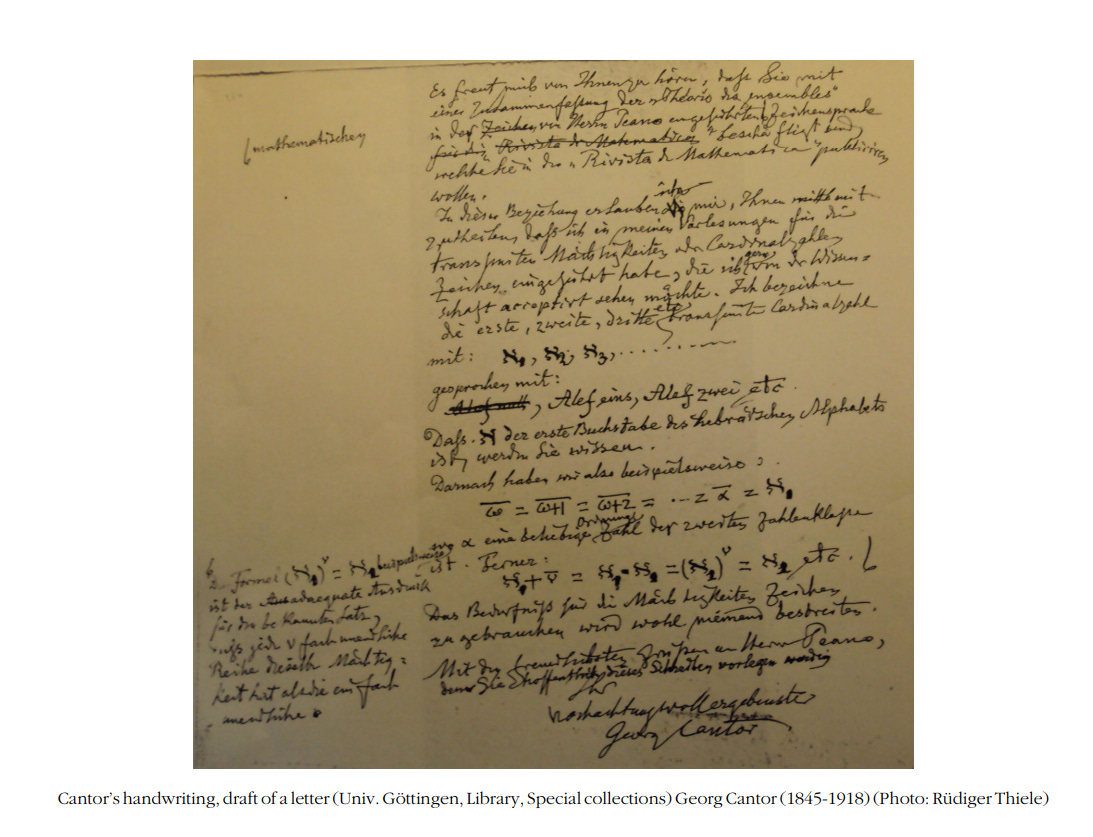 mathematischen
Es freut mich von Ihnen zu hören, daß Sie mit
einer Zusammenfassung der „Théorie des ensembles"
in der Zeichen von Herrn Peano eingeführten Zeichensprache
Rivista di Matematica" beschäftigt sind,
welche Sie in der „Rivista di Mathematica" publiciren
wollen.
In dieser Beziehung erlauben Sie mir, Ihnen mit-
zutheilen, daß ich in meinen Vorlesungen für die
transfiniten Mächtigkeiten oder Cardinalzahlen
Zeichen eingeführt habe, die ich gern von der Wissen=
schaft acceptirt sehen möchte. Ich bezeichne
die erste, zweite, dritte etc transfinite Cardinalzahl
mit: ℵ₁, ℵ₂, ℵ₃, . . . . . . . .
gesprochen mit:
Alef null, Alef eins, Alef zwei etc.
Daß ℵ der erste Buchstabe des hebräischen Alphabets
ist, werden Sie wissen.
Darnach haben wir also beispielsweise:
ω̅ = ω̅+̅1̅ = ω̅+̅2̅ = ... = α̅ = ℵ₁
wo α eine beliebige Ordnungszahl der zweiten Zahlenklasse
ist. Ferner:
ℵ₁ + ν̅ = ℵ₁·ℵ₁ = (ℵ₁)^ν = ℵ₁ etc.
Das Bedürfniß für die Mächtigkeiten Zeichen
zu gebrauchen wird wohl niemand bestreiten.
Mit den freundlichsten Grüßen an Herrn Peano,
dem Sie hoffentlich dieses Schreiben vorlegen werden
Ihr
hochachtungsvoll ergebenster
Georg Cantor
Formel (ℵ₁)^ν = ℵ₁ beispielsweise
ist der adaequate Ausdruck
für den bekannten Satz,
daß jede ν fach unendliche
Reihe dieselbe Mächtig=
keit hat als die einfach
unendliche.
Cantor's handwriting, draft of a letter (Univ. Göttingen, Library, Special collections) Georg Cantor (1845-1918) (Photo: Rüdiger Thiele)